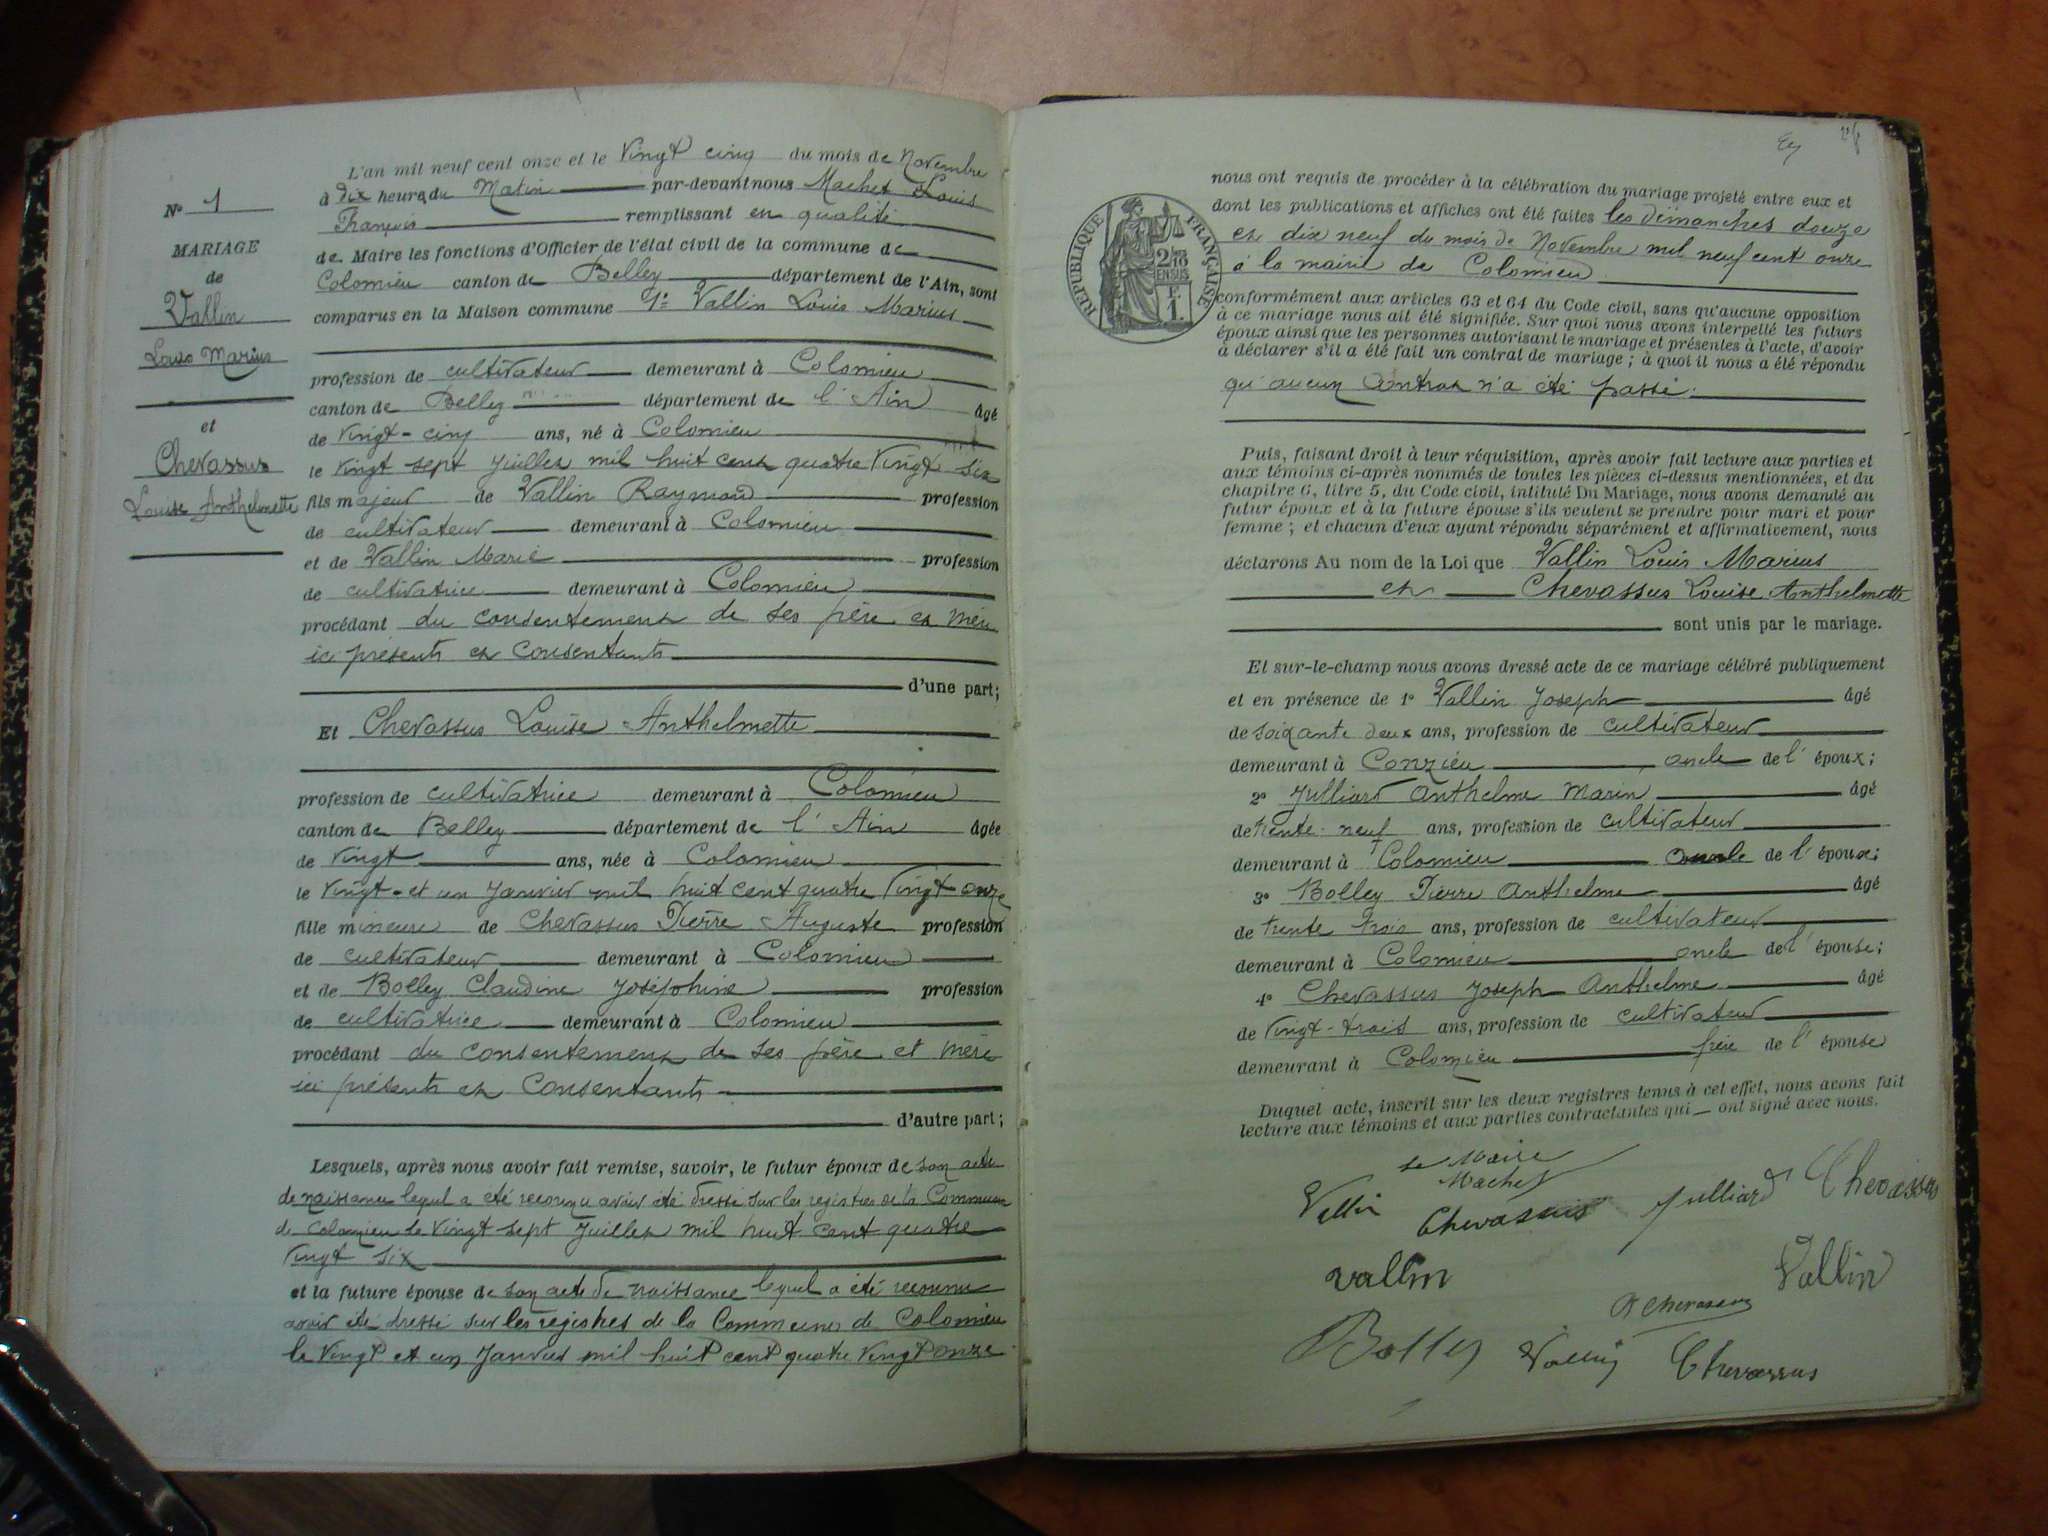 N° 1
MARIAGE
de
Vallin
Louis Marius
et
Chevassus
Louise Anthelmette
L'an mil neuf cent onze et le Vingt cinq du mois de Novembre
à dix heures du Matin par-devant nous Machet Louis
François remplissant en qualité
de Maire les fonctions d'Officier de l'état civil de la commune de
Colomieu canton de Belley département de l'Ain, sont
comparus en la Maison commune 1° Vallin Louis Marius
profession de cultivateur demeurant à Colomieu
canton de Belley département de l'Ain âgé
de Vingt-cinq ans, né à Colomieu
le Vingt sept Juillet mil huit cent quatre Vingt Six
fils majeur de Vallin Raymond profession
de cultivateur demeurant à Colomieu
et de Vallin Marie profession
de cultivatrice demeurant à Colomieu
procédant du consentement de ses père et mère
ici présents et Consentants
d'une part;
Et Chevassus Louise Anthelmette
profession de cultivatrice demeurant à Colomieu
canton de Belley département de l'Ain âgée
de Vingt ans, née à Colomieu
le Vingt-et un Janvier mil huit cent quatre Vingt onze
fille mineure de Chevassus Pierre Auguste profession
de cultivateur demeurant à Colomieu
et de Bolley Claudine Joséphine profession
de cultivatrice demeurant à Colomieu
procédant du consentement de ses père et mère
ici présents et Consentants
d'autre part;
Lesquels, après nous avoir fait remise, savoir, le futur époux de son acte
de naissance lequel a été reconnu avoir été dressé sur les registres de la Commune
de Colomieu le Vingt sept Juillet mil huit cent quatre
Vingt six
et la future épouse de son acte de naissance lequel a été reconnu
avoir été dressé sur les registres de la Commune de Colomieu
le Vingt et un Janvier mil huit cent quatre Vingt onze
RÉPUBLIQUE FRANÇAISE
2/10
EN SUS
F.
1.
nous ont requis de procéder à la célébration du mariage projeté entre eux et
dont les publications et affiches ont été faites les dimanches douze
et dix neuf du mois de Novembre mil neuf cent onze
à la mairie de Colomieu
conformément aux articles 63 et 64 du Code civil, sans qu'aucune opposition
à ce mariage nous ait été signifiée. Sur quoi nous avons interpellé les futurs
époux ainsi que les personnes autorisant le mariage et présentes à l'acte, d'avoir
à déclarer s'il a été fait un contrat de mariage; à quoi il nous a été répondu
qu'aucun Contrat n'a été passé.
Puis, faisant droit à leur réquisition, après avoir fait lecture aux parties et
aux témoins ci-après nommés de toutes les pièces ci-dessus mentionnées, et du
chapitre 6, titre 5, du Code civil, intitulé Du Mariage, nous avons demandé au
futur époux et à la future épouse s'ils veulent se prendre pour mari et pour
femme; et chacun d'eux ayant répondu séparément et affirmativement, nous
déclarons Au nom de la Loi que Vallin Louis Marius
et Chevassus Louise Anthelmette
sont unis par le mariage.
Et sur-le-champ nous avons dressé acte de ce mariage célébré publiquement
et en présence de 1° Vallin Joseph âgé
de soixante deux ans, profession de cultivateur
demeurant à Conzieu oncle de l'époux;
2° Julliard Anthelme Marin âgé
de trente-neuf ans, profession de cultivateur
demeurant à Colomieu oncle de l'époux;
3° Bolley Pierre Anthelme âgé
de trente trois ans, profession de cultivateur
demeurant à Colomieu oncle de l'épouse;
4° Chevassus Joseph Anthelme âgé
de Vingt-trois ans, profession de cultivateur
demeurant à Colomieu frère de l'épouse
Duquel acte, inscrit sur les deux registres tenus à cet effet, nous avons fait
lecture aux témoins et aux parties contractantes qui ont signé avec nous.
Le Maire
Machet
Vallin Chevassus Julliard Chevassus
Vallin Vallin
Chevassus
Bolley Vallin Chevassus